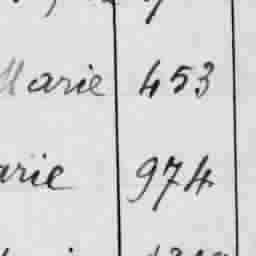 Marie 453
arie 974